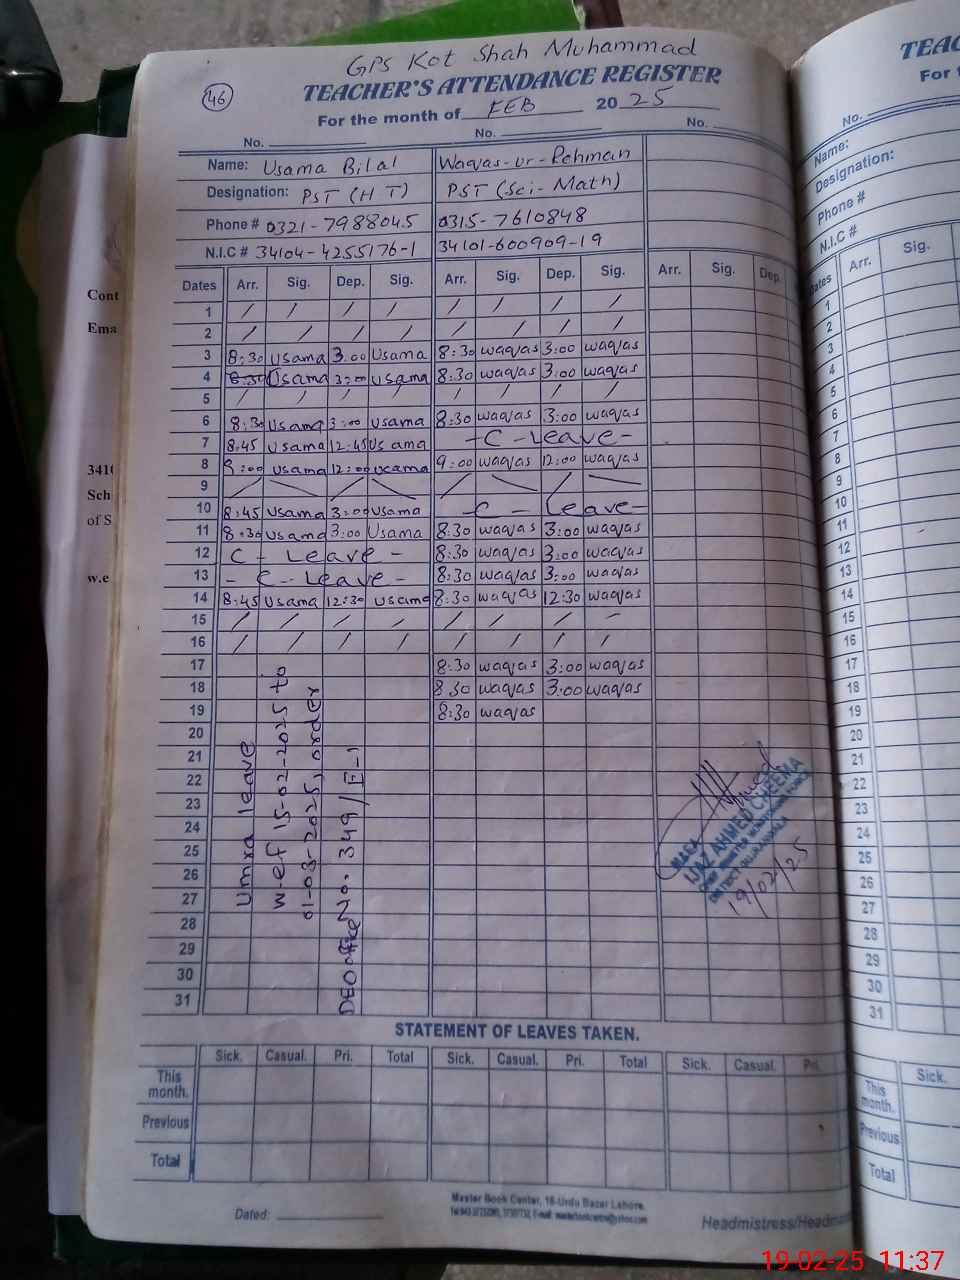 GPS Kot Shah Muhammad
46
TEACHER'S ATTENDANCE REGISTER
For the month of FEB 2025
No. No. No.
Name: Usama Bilal Waqas-ur-Rehman
Designation: PST (H T) PST (Sci-Math)
Phone # 0321-7988045 0315-7610848
N.I.C # 34104-4255176-1 34101-600909-19
Dates Arr. Sig. Dep. Sig. Arr. Sig. Dep. Sig. Arr. Sig. Dep.
1 / / / / / / / /
2 / / / / / / / /
3 8:30 Usama 3:00 Usama 8:30 waqas 3:00 waqas
4 8:30 Usama 3:00 usama 8:30 waqas 3:00 waqas
5 / / / / / / / /
6 8:30 Usama 3:00 Usama 8:30 waqas 3:00 waqas
7 8:45 Usama 12:45 Usama -C-Leave-
8 9:00 usama 12:00 usama 9:00 waqas 12:00 waqas
9 / \ / \ / \ / \
10 8:45 usama 3:00 usama -C- Leave-
11 8:30 usama 3:00 Usama 8:30 waqas 3:00 waqas
12 C - Leave - 8:30 waqas 3:00 waqas
13 - C - Leave - 8:30 waqas 3:00 waqas
14 8:45 Usama 12:30 usama 8:30 waqas 12:30 waqas
15 / / / / / / / /
16 / / / / / / / /
17 8:30 waqas 3:00 waqas
18 8:30 waqas 3:00 waqas
19 8:30 waqas
20
21
22
23
24
25
26
27
28
29
30
31
Umra leave
w.ef 15-02-2025 to
01-03-2025, order
DEO office No. 349/E-1
Ahmed
MAEA
IJAZ AHMED CHEEMA
CHIEF MINISTER MONITORING FORCE
DISTRICT GUJRANWALA
19/02/25
STATEMENT OF LEAVES TAKEN.
Sick. Casual. Pri. Total Sick. Casual. Pri. Total Sick. Casual. Pri.
This month.
Previous
Total
Master Book Center, 16-Urdu Bazar Lahore.
Dated:
Headmistress/Headma
TEAC
For t
No.
Name:
Designation:
Phone #
N.I.C #
ates Arr. Sig.
1
2
3
4
5
6
7
8
9
10
11
12
13
14
15
16
17
18
19
20
21
22
23
24
25
26
27
28
29
30
31
Sick.
This month.
Previous
Total
Cont
Ema
341
Sch
of S
w.e
19-02-25 11:37